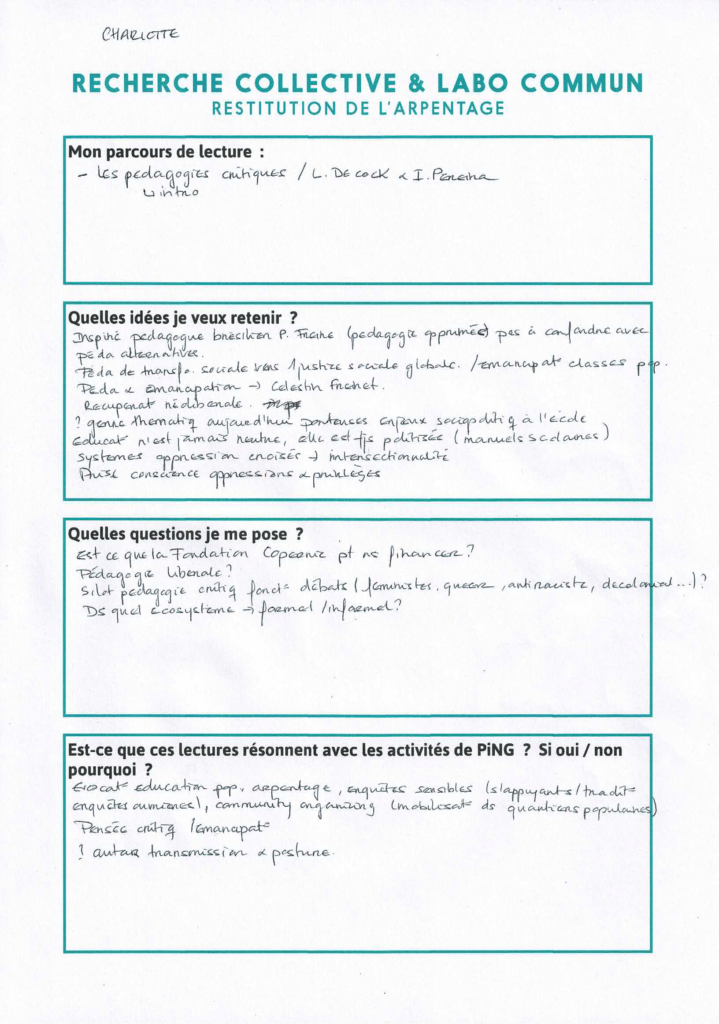 CHARLOTTE
RECHERCHE COLLECTIVE & LABO COMMUN
RESTITUTION DE L'ARPENTAGE
Mon parcours de lecture :
- Les pédagogies critiques / L. De cock & I. Pereira
↳ intro
Quelles idées je veux retenir ?
Inspiré pédagogue brésilien P. Freire (pédagogie opprimés) pas à confondre avec
péda alternatives.
Péda de transfo. sociale vers 1 justice sociale globale. / émancipat° classes pop.
Péda & émancipation → Celestin Freinet.
Recuperat° néolibérale.
? genre thématiq aujourd'hui porteuses enjeux sociopolitiq à l'école
Educat° n'est jamais neutre, elle est tjs politisée (manuels scolaires)
Systèmes oppression croisés → intersectionnalité
Prise conscience oppressions & privilèges
Quelles questions je me pose ?
Est ce que la Fondation Copernic pt ns financer ?
Pédagogie libérale ?
Si tot pédagogie critiq fonct° débats (féministes, queer, antiraciste, decolonial...) ?
Ds quel écosystème → formel / informel ?
Est-ce que ces lectures résonnent avec les activités de PiNG ? Si oui / non
pourquoi ?
Evocat° education pop. arpentage, enquêtes sensibles (s'appuyants / tradit°
enquêtes ouvrières), community organizing (mobilisat° ds quartiers populaires)
Pensée critiq / émancipat°
? autour transmission & posture.